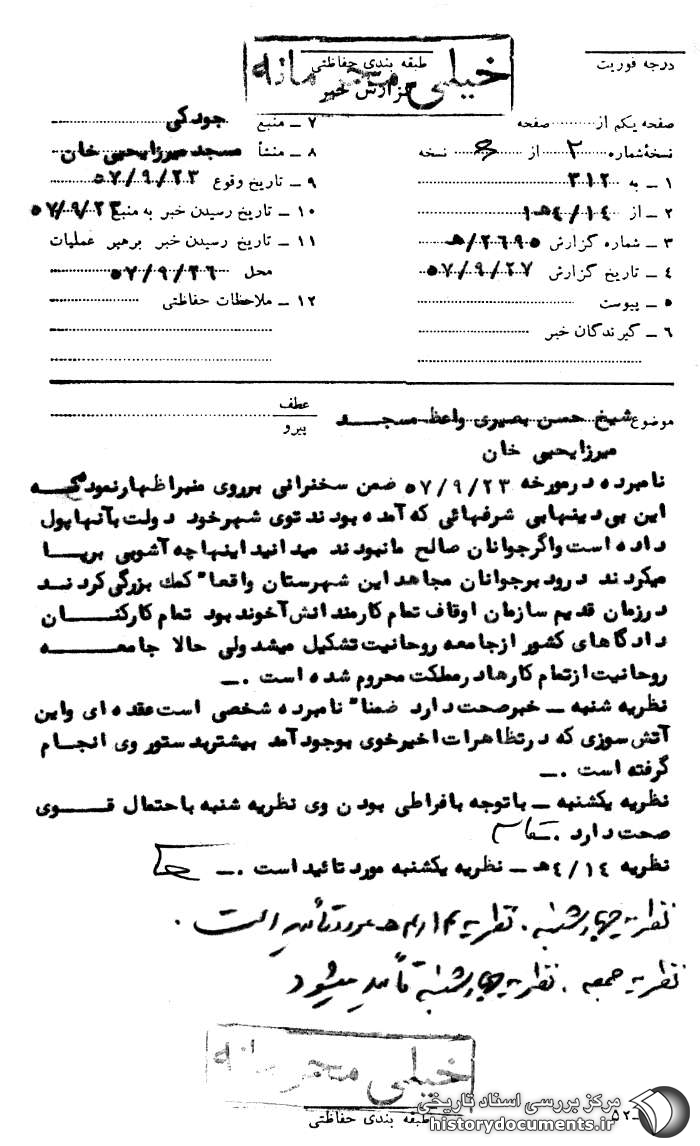 درجه فوریت
طبقه بندی حفاظتی
خیلی محرمانه
گزارش خبر
صفحه یکم از صفحه
نسخه شماره ۲ از نسخه
۱ ــ به ۳۱۲
۲ ــ از ۴/۱۴هـ۱
۳ ــ شماره گزارش ۲۶۹۵/هـ
۴ ــ تاریخ گزارش ۵۷/۹/۲۷
۵ ــ پیوست
۶ ــ گیرندگان خبر
۷ ــ منبع جودکی
۸ ــ منشأ مسجد میرزایحیی خان
۹ ــ تاریخ وقوع ۵۷/۹/۲۳
۱۰ ــ تاریخ رسیدن خبر به منبع ۵۷/۹/۲۳
۱۱ ــ تاریخ رسیدن خبر برهبر عملیات
محل ۵۷/۹/۲۶
۱۲ ــ ملاحظات حفاظتی
عطف
پیرو
موضوع شیخ حسن بصیری واعظ مسجد
میرزایحیی خان
نامبرده درمورخه ۵۷/۹/۲۳ ضمن سخنرانی برروی منبر اظهارنمود که
این بی دینهابی شرفهائی که آمده بودند توی شهرخود دولت بآنهاپول
داده است واگرجوانان صالح مانبودند میدانید اینهاچه آشوبی برپا
میکردند درود برجوانان مجاهد این شهرستان واقعا" کمک بزرگی کردند
درزمان قدیم سازمان اوقاف تمام کارمندانش آخوند بود تمام کارکنان
دادگاهای کشور ازجامعه روحانیت تشکیل میشد ولی حالا جامعه
روحانیت ازتمام کارهادرمملکت محروم شده است .ــ
نظریه شنبه ــ خبرصحت دارد ضمنا" نامبرده شخصی است عقده ای واین
آتش سوزی که درتظاهرات اخیرخوی بوجود آمد بیشتربدستور وی انجام
گرفته است .ــ
نظریه یکشنبه ــ باتوجه بافراطی بودن وی نظریه شنبه باحتمال قوی
صحت دارد .
نظریه ۴/۱۴هـ ــ نظریه یکشنبه مورد تائید است .ــ
نظریه چهارشنبه . نظریه ۴/۱۴هـ مورد تأیید است .
نظریه جمعه . نظریه چهارشنبه تأیید میشود
خیلی محرمانه
طبقه بندی حفاظتی
۵۲
مرکز بررسی اسناد تاریخی
historydocuments.ir